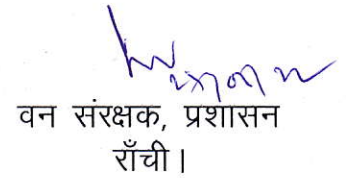 वन संरक्षक, प्रशासन
राँची।